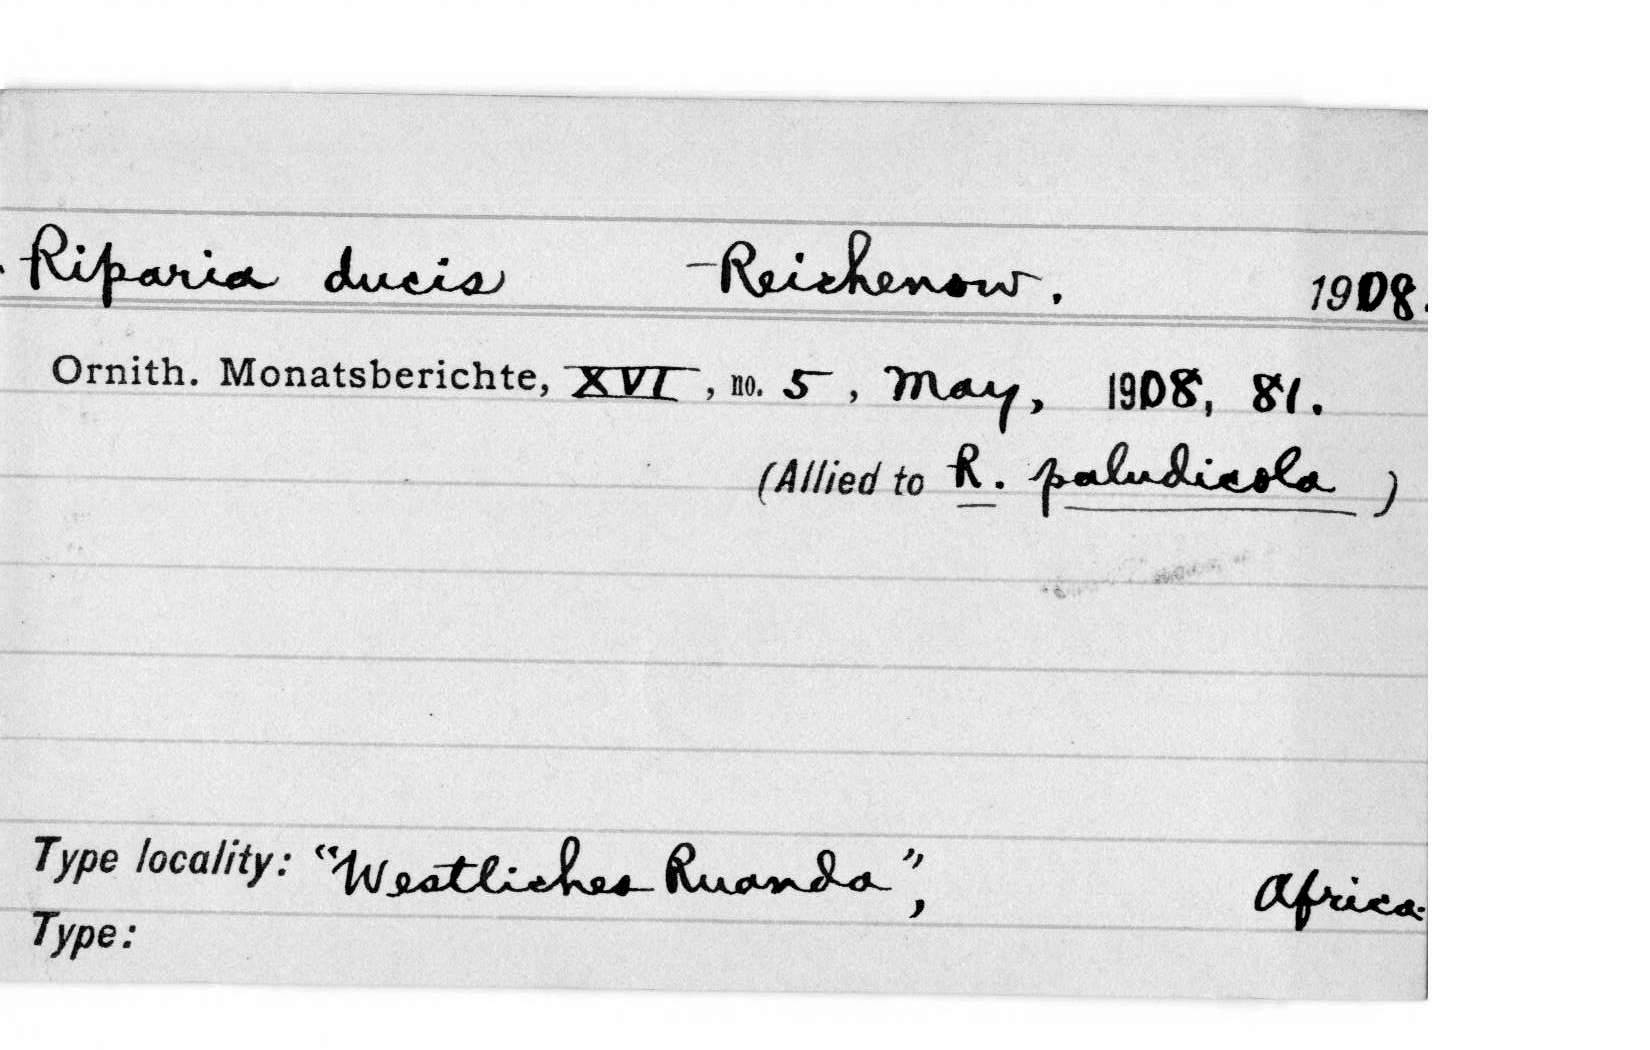 Riparia ducis Reichenow. 1908.
Ornith. Monatsberichte, XVI, no. 5, May, 1908, 81.
(Allied to R. paludicola)
Type locality: "Westliches Ruanda", Africa.
Type: